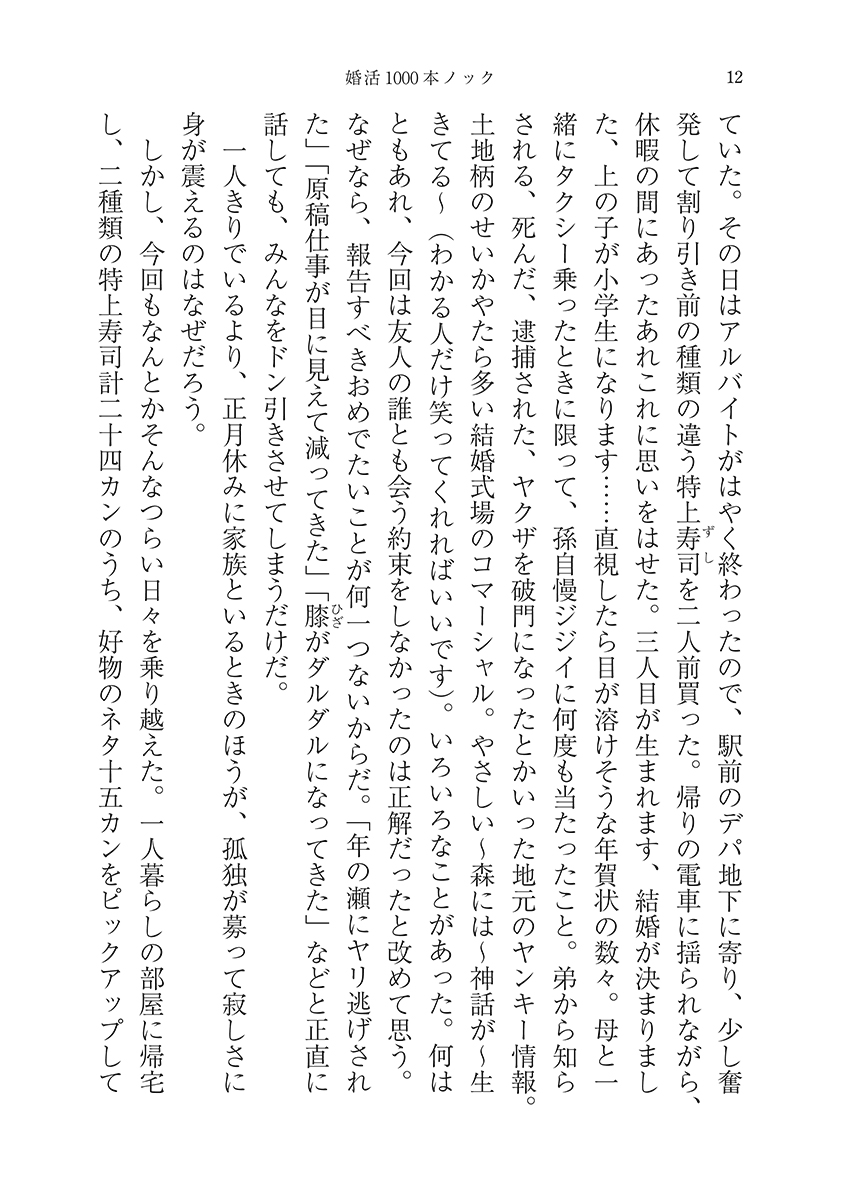 婚活1000本ノック
12
ていた。その日はアルバイトがはやく終わったので、駅前のデパ地下に寄り、少し奮
発して割り引き前の種類の違う特上寿司を二人前買った。帰りの電車に揺られながら、
ずし
休暇の間にあったあれこれに思いをはせた。三人目が生まれます、結婚が決まりまし
た、上の子が小学生になります……直視したら目が溶けそうな年賀状の数々。母と一
緒にタクシー乗ったときに限って、孫自慢ジジイに何度も当たったこと。弟から知ら
される、死んだ、逮捕された、ヤクザを破門になったとかいった地元のヤンキー情報。
土地柄のせいかやたら多い結婚式場のコマーシャル。やさしい～森には～神話が～生
きてる～（わかる人だけ笑ってくれればいいです）。いろいろなことがあった。何は
ともあれ、今回は友人の誰とも会う約束をしなかったのは正解だったと改めて思う。
なぜなら、報告すべきおめでたいことが何一つないからだ。「年の瀬にヤリ逃げされ
た」「原稿仕事が目に見えて減ってきた」「膝がダルダルになってきた」などと正直に
ひざ
話しても、みんなをドン引きさせてしまうだけだ。
一人きりでいるより、正月休みに家族といるときのほうが、孤独が募って寂しさに
身が震えるのはなぜだろう。
しかし、今回もなんとかそんなつらい日々を乗り越えた。一人暮らしの部屋に帰宅
し、二種類の特上寿司計二十四カンのうち、好物のネタ十五カンをピックアップして